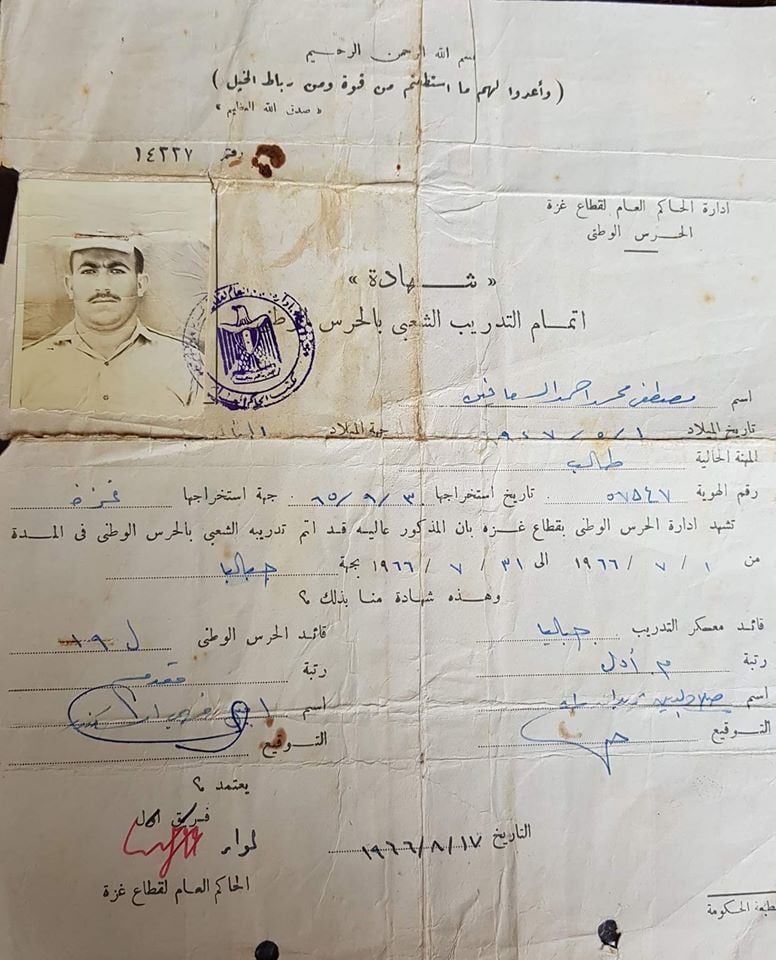 بسم الله الرحمن الرحيم
( وأعدوا لهم ما استطعتم من قوة ومن رباط الخيل )
« صدق الله العظيم »
رقم ١٤٢٢٧
ادارة الحاكم العام لقطاع غزة
الحرس الوطنى
« شــهادة »
اتمــام التدريب الشعبى بالحرس
اسم مصطفى محمد احمد السعافين
تاريخ الميلاد ١ / ٥ / ١٩٤٧ جهة الميلاد
المهنة الحالية طالب
رقم الهوية ٥٧٥٤٧ تاريخ استخراجها ٣ / ٩ / ٦٥ جهة استخراجها غزة
تشهد ادارة الحرس الوطنى بقطاع غـزه بان المذكور عاليـه قـد اتم تدريبه الشعبى بالحرس الوطنى فى المـدة
من ١ / ٧ / ١٩٦٦ الى ٣١ / ٧ / ١٩٦٦ بجهة جباليا
وهـذه شهادة منـا بذلك ؟
قائـد معسكر التدريب جباليا
رتبة م. أول
اسم صلاح الدين
التـوقيع
قائـد الحرس الوطنى ل ١٩
رتبة مقدم
اسم
التـوقيع
يعتمد ؟
فريق اول
لواء
الحاكم العـام لقطاع غزة
التاريخ ١٧ / ٨ / ١٩٦٦
مطبعة الحكومة